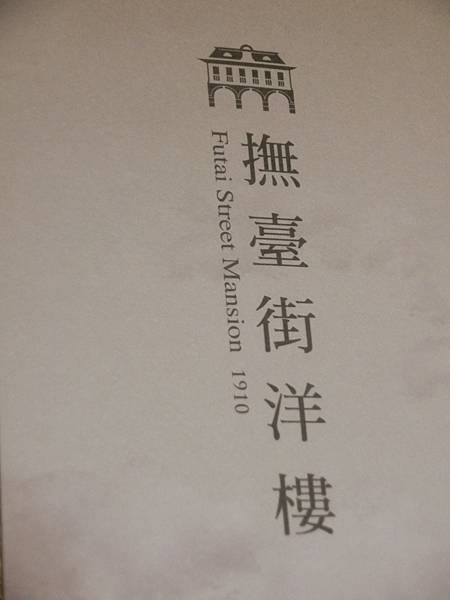 撫臺街洋樓
Futai Street Mansion 1910